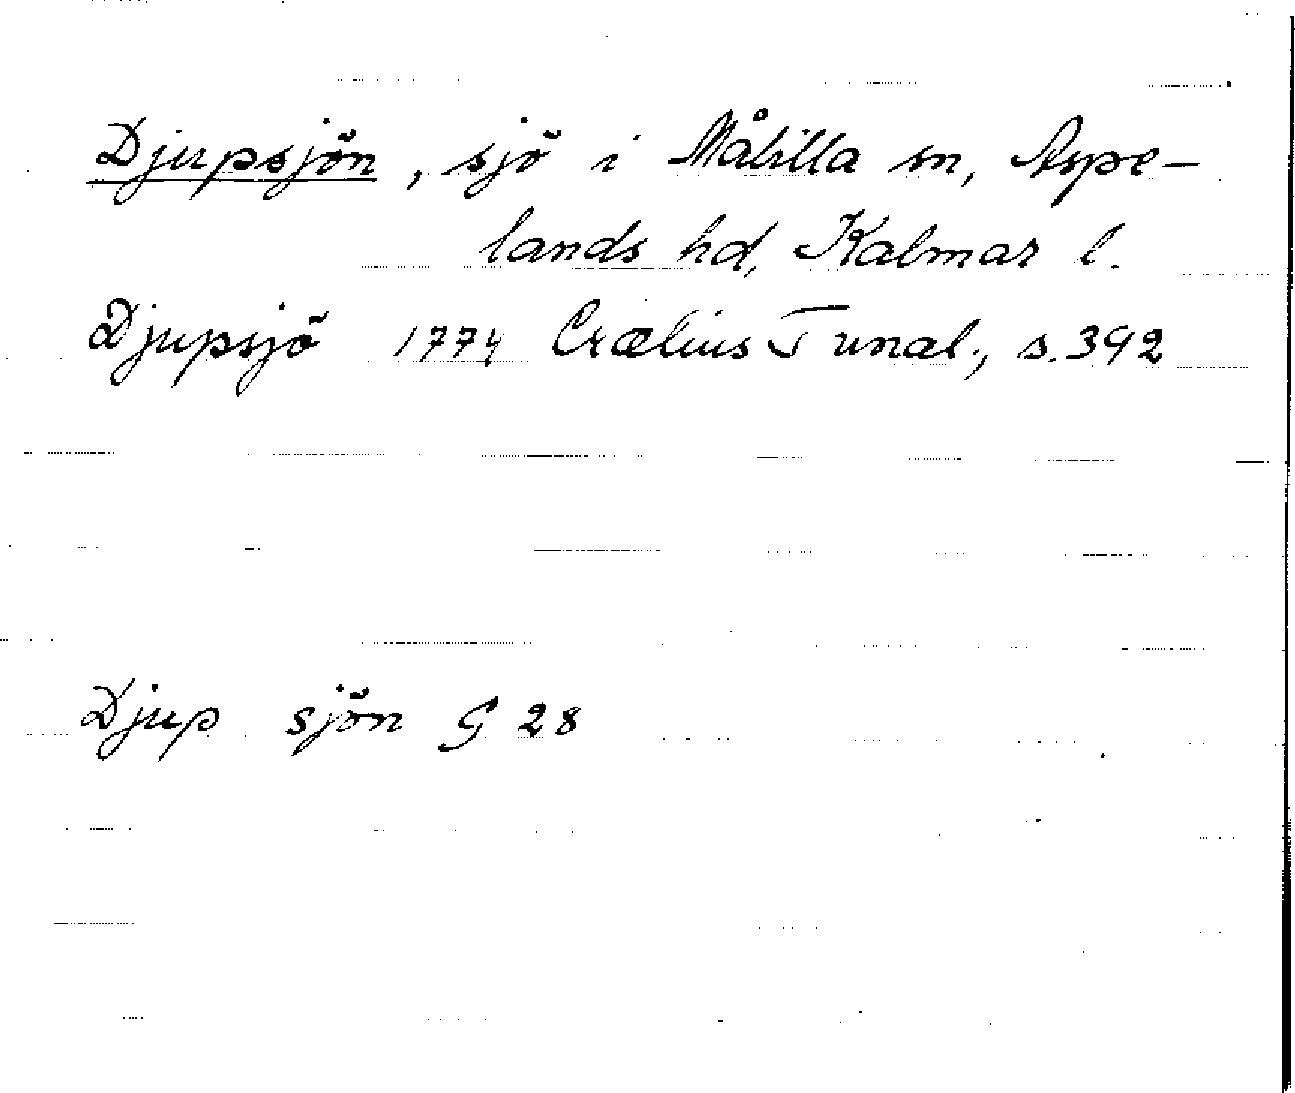 Djupsjön, sjö i Målilla sn, Aspe-
lands hd, Kalmar l.
Djupsjö 1774 Crælius Tunal., s. 392
Djup sjön G 28